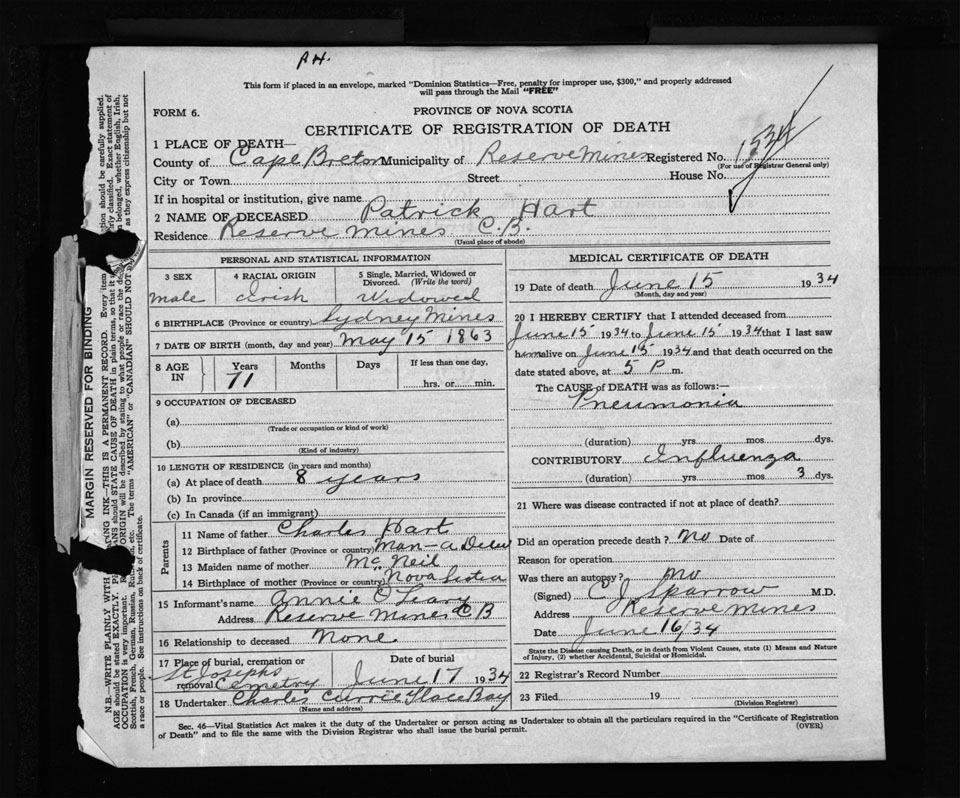 P.H.
This form if placed in an envelope, marked "Dominion Statistics—Free, penalty for improper use, $300," and properly addressed
will pass through the Mail "FREE"
FORM 6.
PROVINCE OF NOVA SCOTIA
CERTIFICATE OF REGISTRATION OF DEATH
1 PLACE OF DEATH—
County of Cape Breton Municipality of Reserve Mines Registered No. 1534
(For use of Registrar General only)
City or Town Street House No.
If in hospital or institution, give name
2 NAME OF DECEASED Patrick Hart
Residence Reserve Mines C.B.
(Usual place of abode)
PERSONAL AND STATISTICAL INFORMATION
3 SEX 4 RACIAL ORIGIN 5 Single, Married, Widowed or Divorced. (Write the word)
male Irish Widowed
6 BIRTHPLACE (Province or country) Sydney Mines
7 DATE OF BIRTH (month, day and year) May 15 1863
8 AGE IN Years Months Days If less than one day,
71 hrs. or min.
9 OCCUPATION OF DECEASED
(a)
(Trade or occupation or kind of work)
(b)
(Kind of industry)
10 LENGTH OF RESIDENCE (in years and months)
(a) At place of death 8 years
(b) In province
(c) In Canada (if an immigrant)
Parents
11 Name of father Charles Hart
12 Birthplace of father (Province or country) Man-a Dieu
13 Maiden name of mother McNeil
14 Birthplace of mother (Province or country) Nova Scotia
15 Informant's name Annie O'Leary
Address Reserve Mines C B
16 Relationship to deceased None
17 Place of burial, cremation or removal St Josephs Cemetry
Date of burial June 17 1934
18 Undertaker Charles Currie Glace Bay
(Name and address)
MEDICAL CERTIFICATE OF DEATH
19 Date of death June 15 1934
(Month, day and year)
20 I HEREBY CERTIFY that I attended deceased from
June 15 1934 to June 15 1934 that I last saw
him alive on June 15 1934 and that death occurred on the
date stated above, at 5 P m.
The CAUSE of DEATH was as follows:—
Pneumonia
(duration) yrs. mos. dys.
CONTRIBUTORY Influenza
(duration) yrs. mos. 3 dys.
21 Where was disease contracted if not at place of death?
Did an operation precede death? No Date of
Reason for operation
Was there an autopsy? No
(Signed) C J Sparrow M.D.
Address Reserve Mines
Date June 16/34
State the Disease causing Death, or in death from Violent Causes, state (1) Means and Nature
of Injury, (2) whether Accidental, Suicidal or Homicidal.
22 Registrar's Record Number
23 Filed 19
(Division Registrar)
Sec. 46—Vital Statistics Act makes it the duty of the Undertaker or person acting as Undertaker to obtain all the particulars required in the "Certificate of Registration
of Death" and to file the same with the Division Registrar who shall issue the burial permit.
(OVER)
MARGIN RESERVED FOR BINDING
N.B.—WRITE PLAINLY WITH
INK—THIS IS A PERMANENT RECORD. Every item
should be carefully supplied.
AGE should be stated EXACTLY.
should STATE CAUSE OF DEATH in plain terms, so that it
classified. Exact statement of
OCCUPATION is very important.
ORIGIN will be described by stating to what people or race the
belonged, whether English, Irish,
Scottish, French, German, Russian,
etc. The terms "AMERICAN" or "CANADIAN" SHOULD NOT
as they express citizenship but not
a race or people. See instructions on back of certificate.